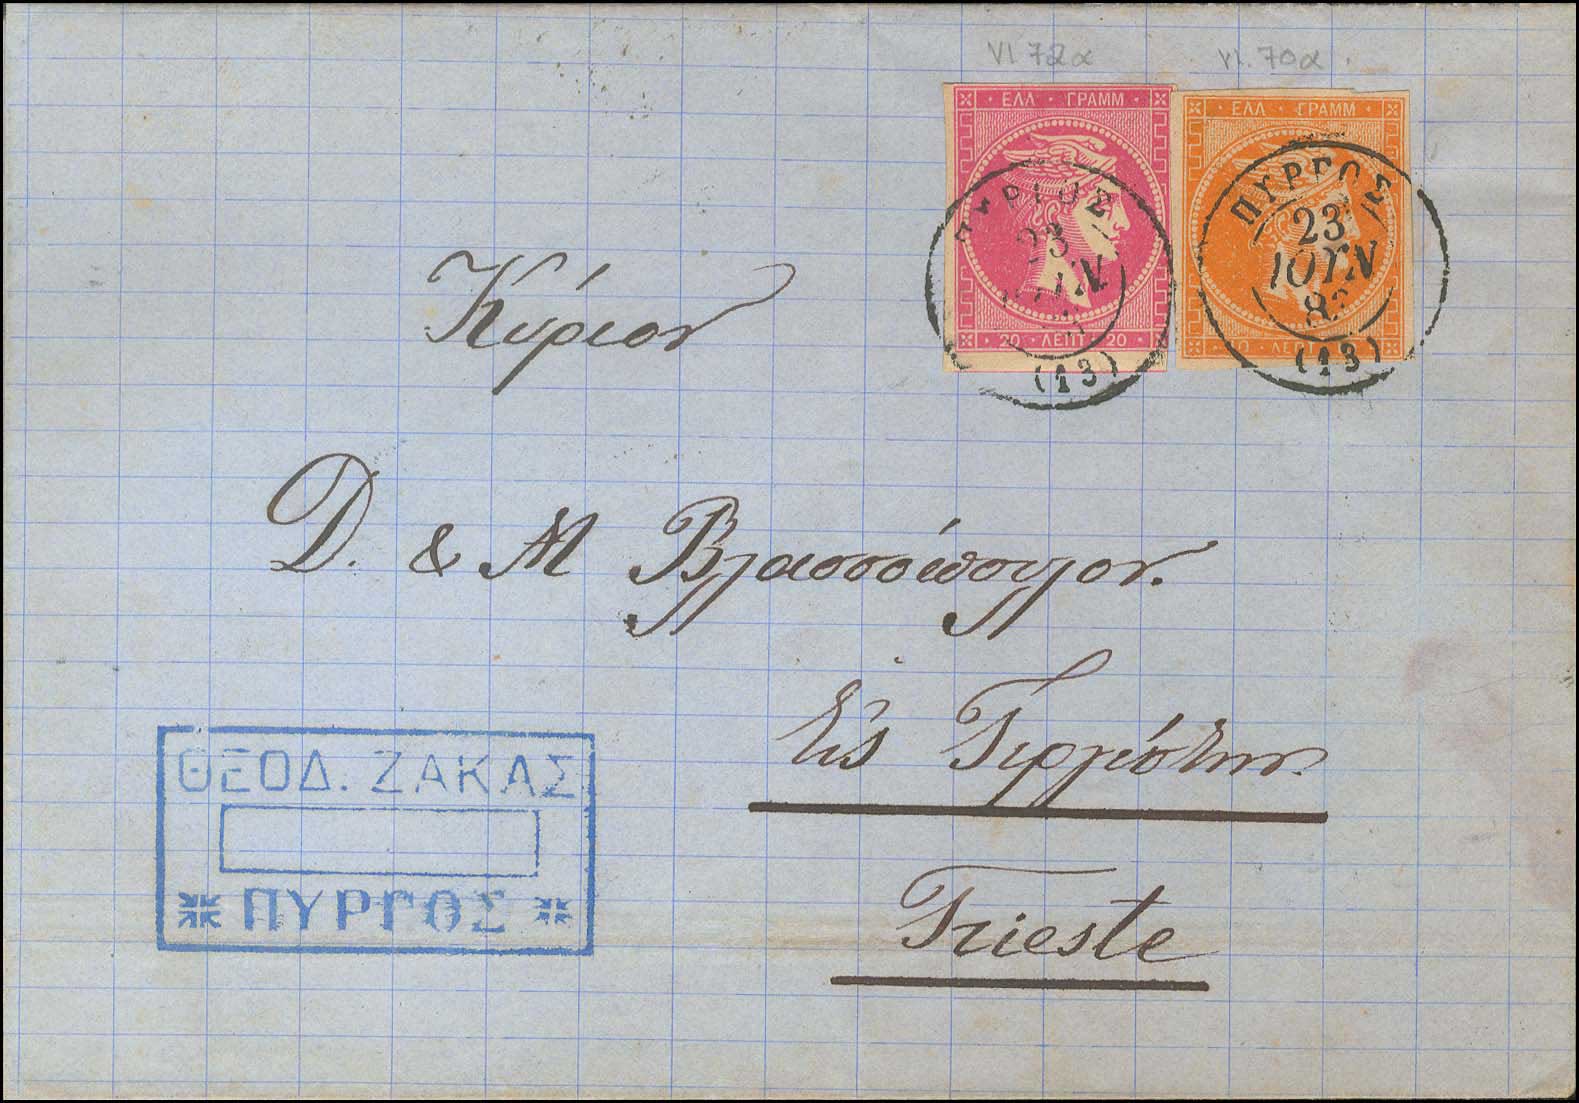 Vl. 72α Vl. 70α
ΕΛΛ · ΓΡΑΜΜ ·
20 · ΛΕΠΤ · 20
ΠΥΡΓΟΣ
23
ΙΟΥΝ
(13)
ΕΛΛ · ΓΡΑΜΜ ·
10 · ΛΕΠΤ
ΠΥΡΓΟΣ
23
ΙΟΥΝ
(13)
Κύριον
D. & M Βλασσόπουλον.
Εἰς Τεργέστην.
Trieste
ΘΕΟΔ. ΖΑΚΑΣ
ΠΥΡΓΟΣ